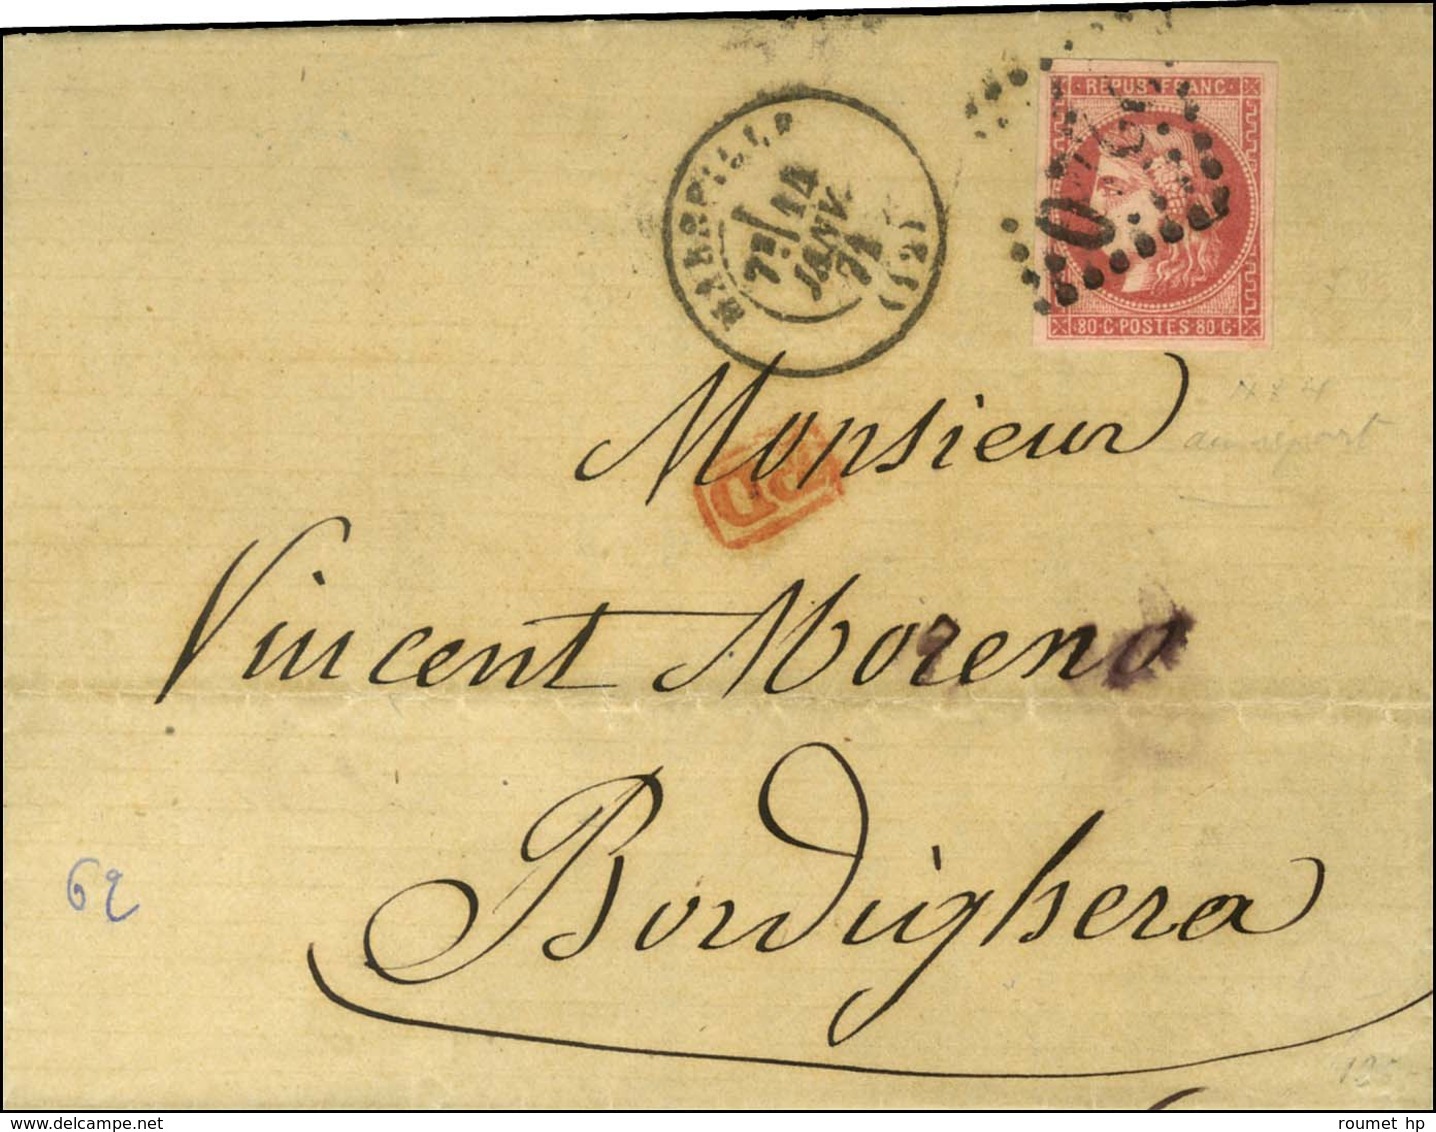 REPUB·FRANC·
80·C·POSTES·80·C·
MARSEILLE
7E/ 14
JANV.
71
(12)
PD
Monsieur
Vincent Moreno
Bordighera
62
roumet hp